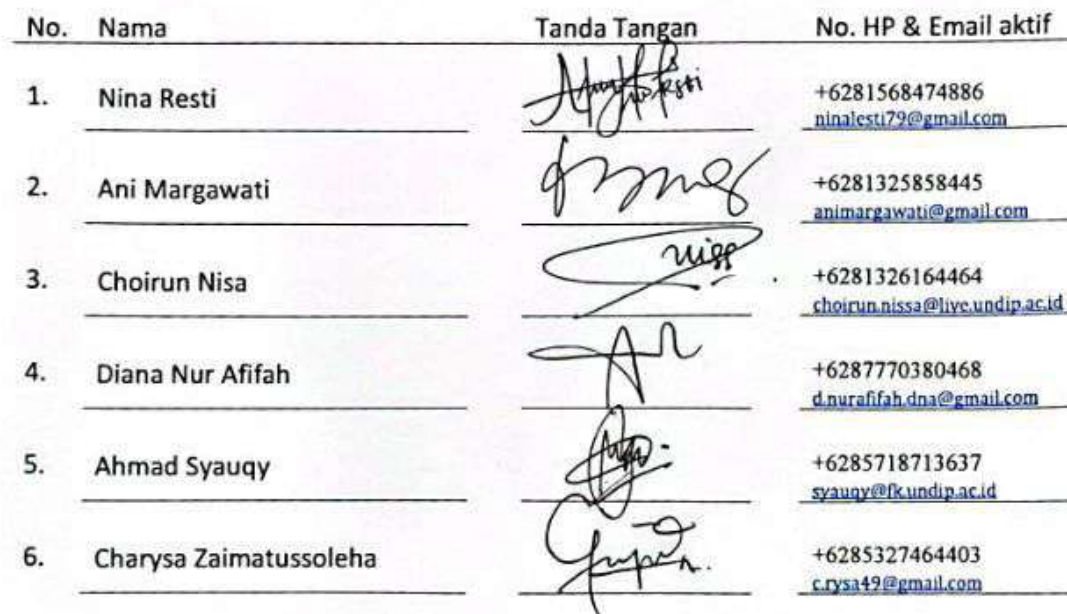 No. Nama Tanda Tangan No. HP & Email aktif
1. Nina Resti +6281568474886
ninalesti79@gmail.com
2. Ani Margawati +6281325858445
animargawati@gmail.com
3. Choirun Nisa +6281326164464
choirun.nissa@live.undip.ac.id
4. Diana Nur Afifah +6287770380468
d.nurafifah.dna@gmail.com
5. Ahmad Syauqy +6285718713637
syauqy@fk.undip.ac.id
6. Charysa Zaimatussoleha +6285327464403
c.rysa49@gmail.com